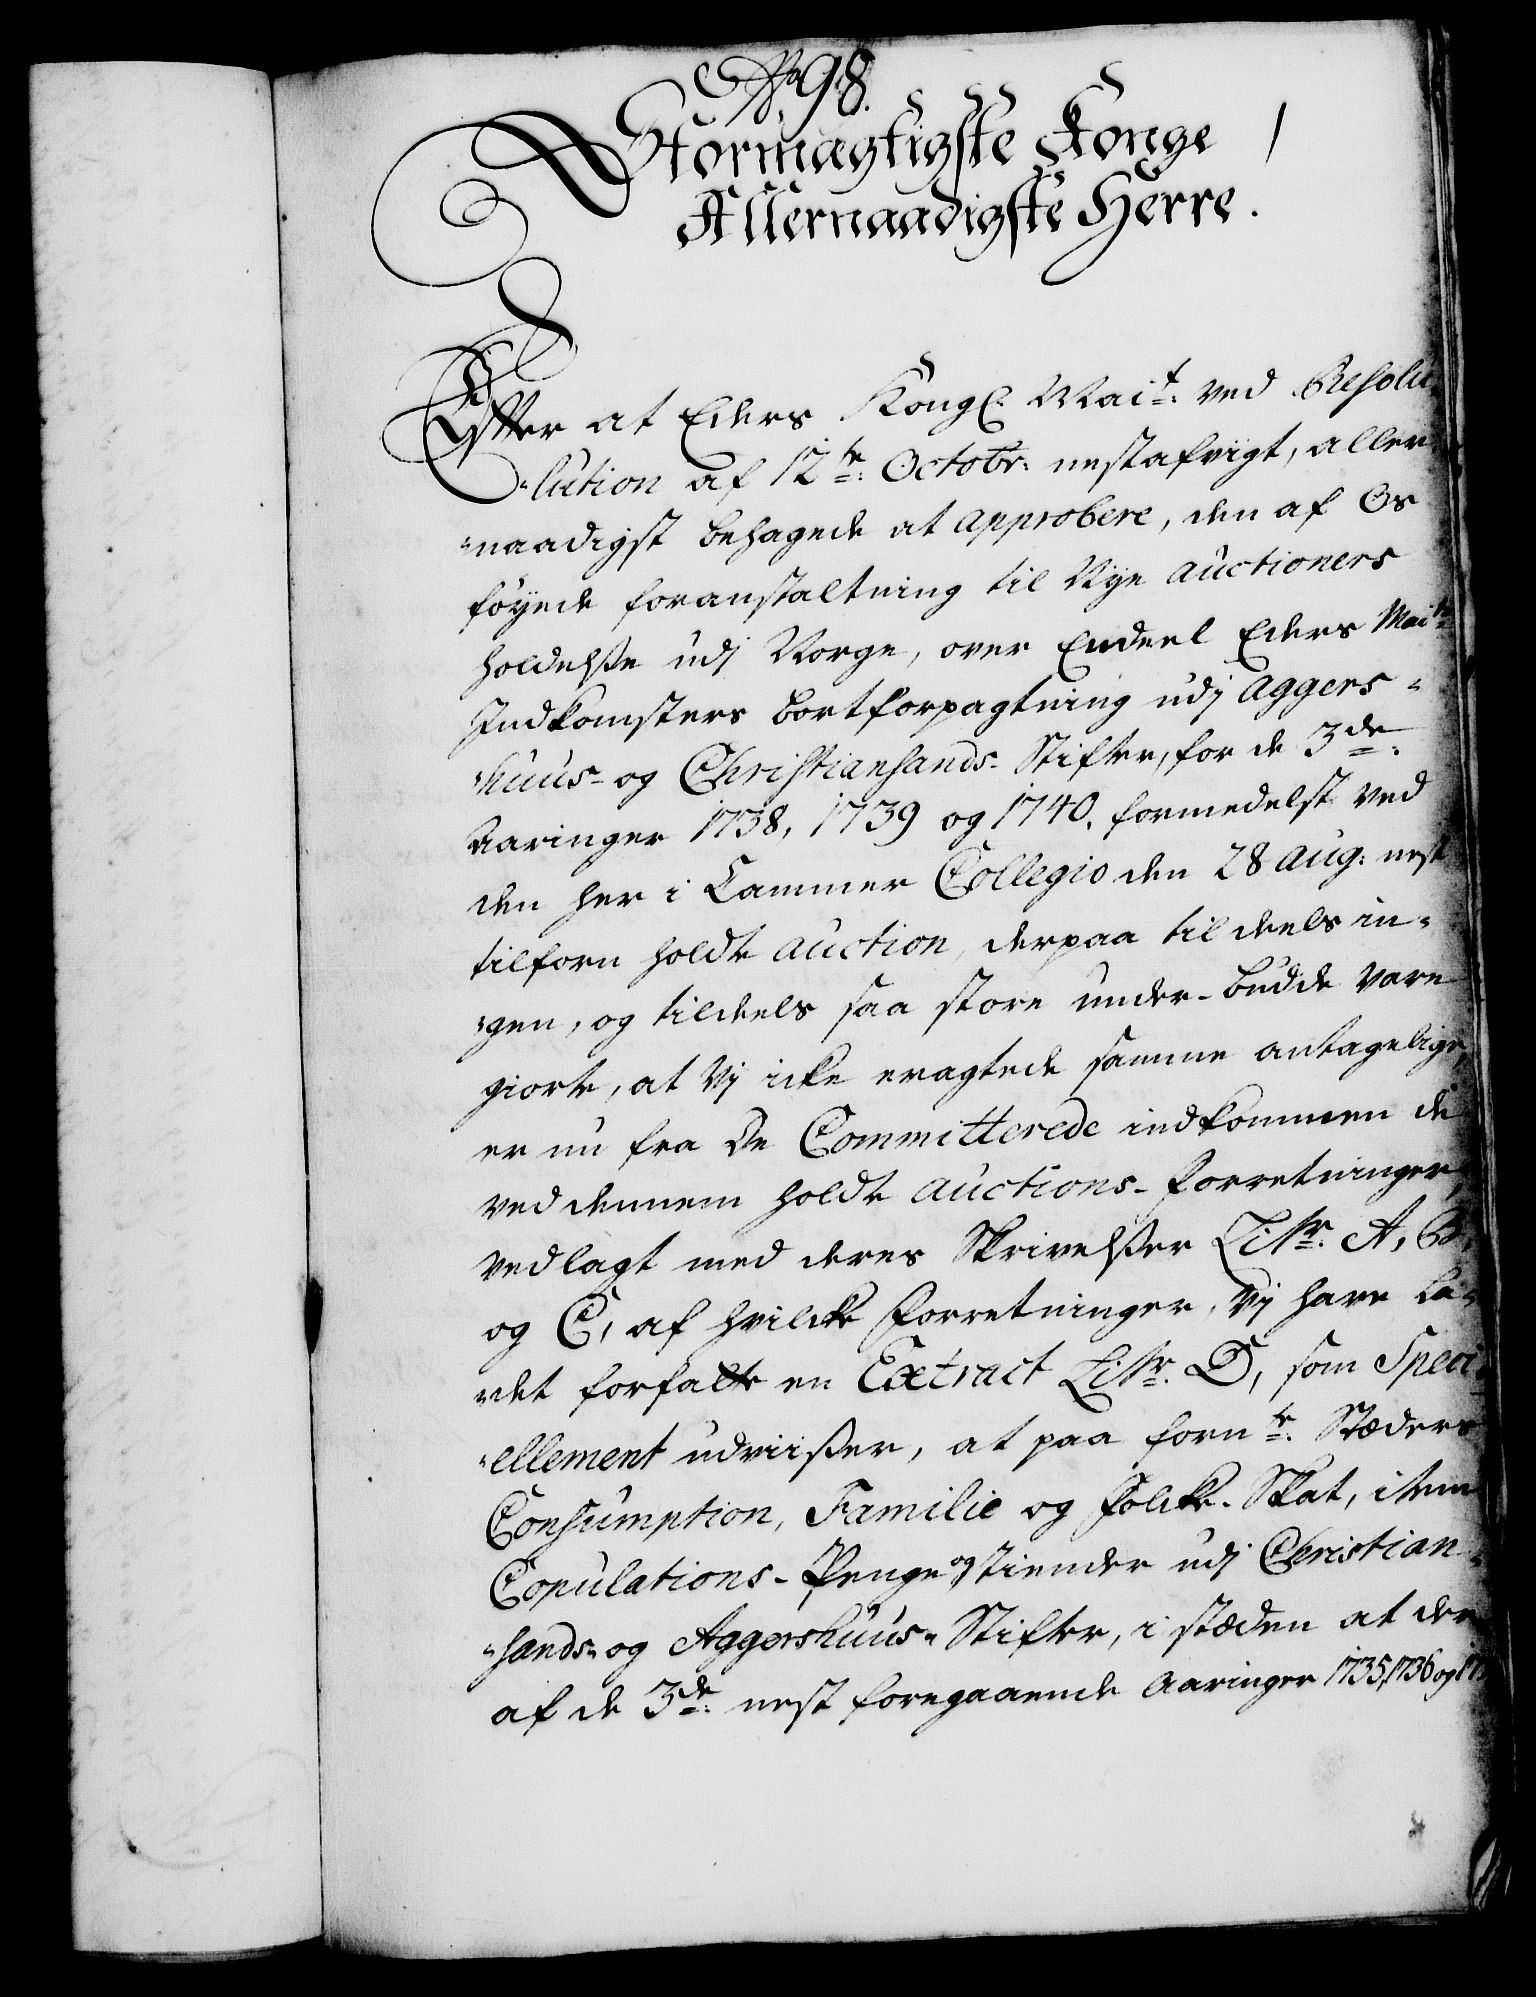 No 98.
Stormægtigste Konge
Allernaadigste Herre.
Efter at Eders Kongl. Mait. ved Resolu
-lution af 12te Octobr. nestafvigt, aller
-naadigst behagede at approbere, den af Os
föyede foranstaltning til Nye auctioners
holdelse udj Norge, over Endeel Eders Maits
Indkomsters bortforpagtning udj Aggers-
huus- og Christiansands- Stifter, for de 3de
Aaringer 1738, 1739 og 1740, formedelst ved
den her i Cammer Collegio den 28 aug: nest
tilforn holdte auction, derpaa til deels in-
-gen, og tildeels saa store under-budde vare
giorte, at Vj icke eragtede samme antagelige,
er nu fra De Committerede indkommen de
ved dennem holdte auctions-forretninger,
vedlagt med deres Skrivelser Litr. A, B,
og C, af hvilcke forretninger, Vj have la-
-det forfatte en Extract Litr. D, som Speci
-ellement udviiser, at paa fornte. Stæders
Consumption, Familie og folcke-Skat, item
Copulations-Penge og Tiender udj Christian-
-sands- og Aggershuus- Stifter, i stæden at der
af de 3de nest foregaaende Aaringer 1735, 1736 og 17